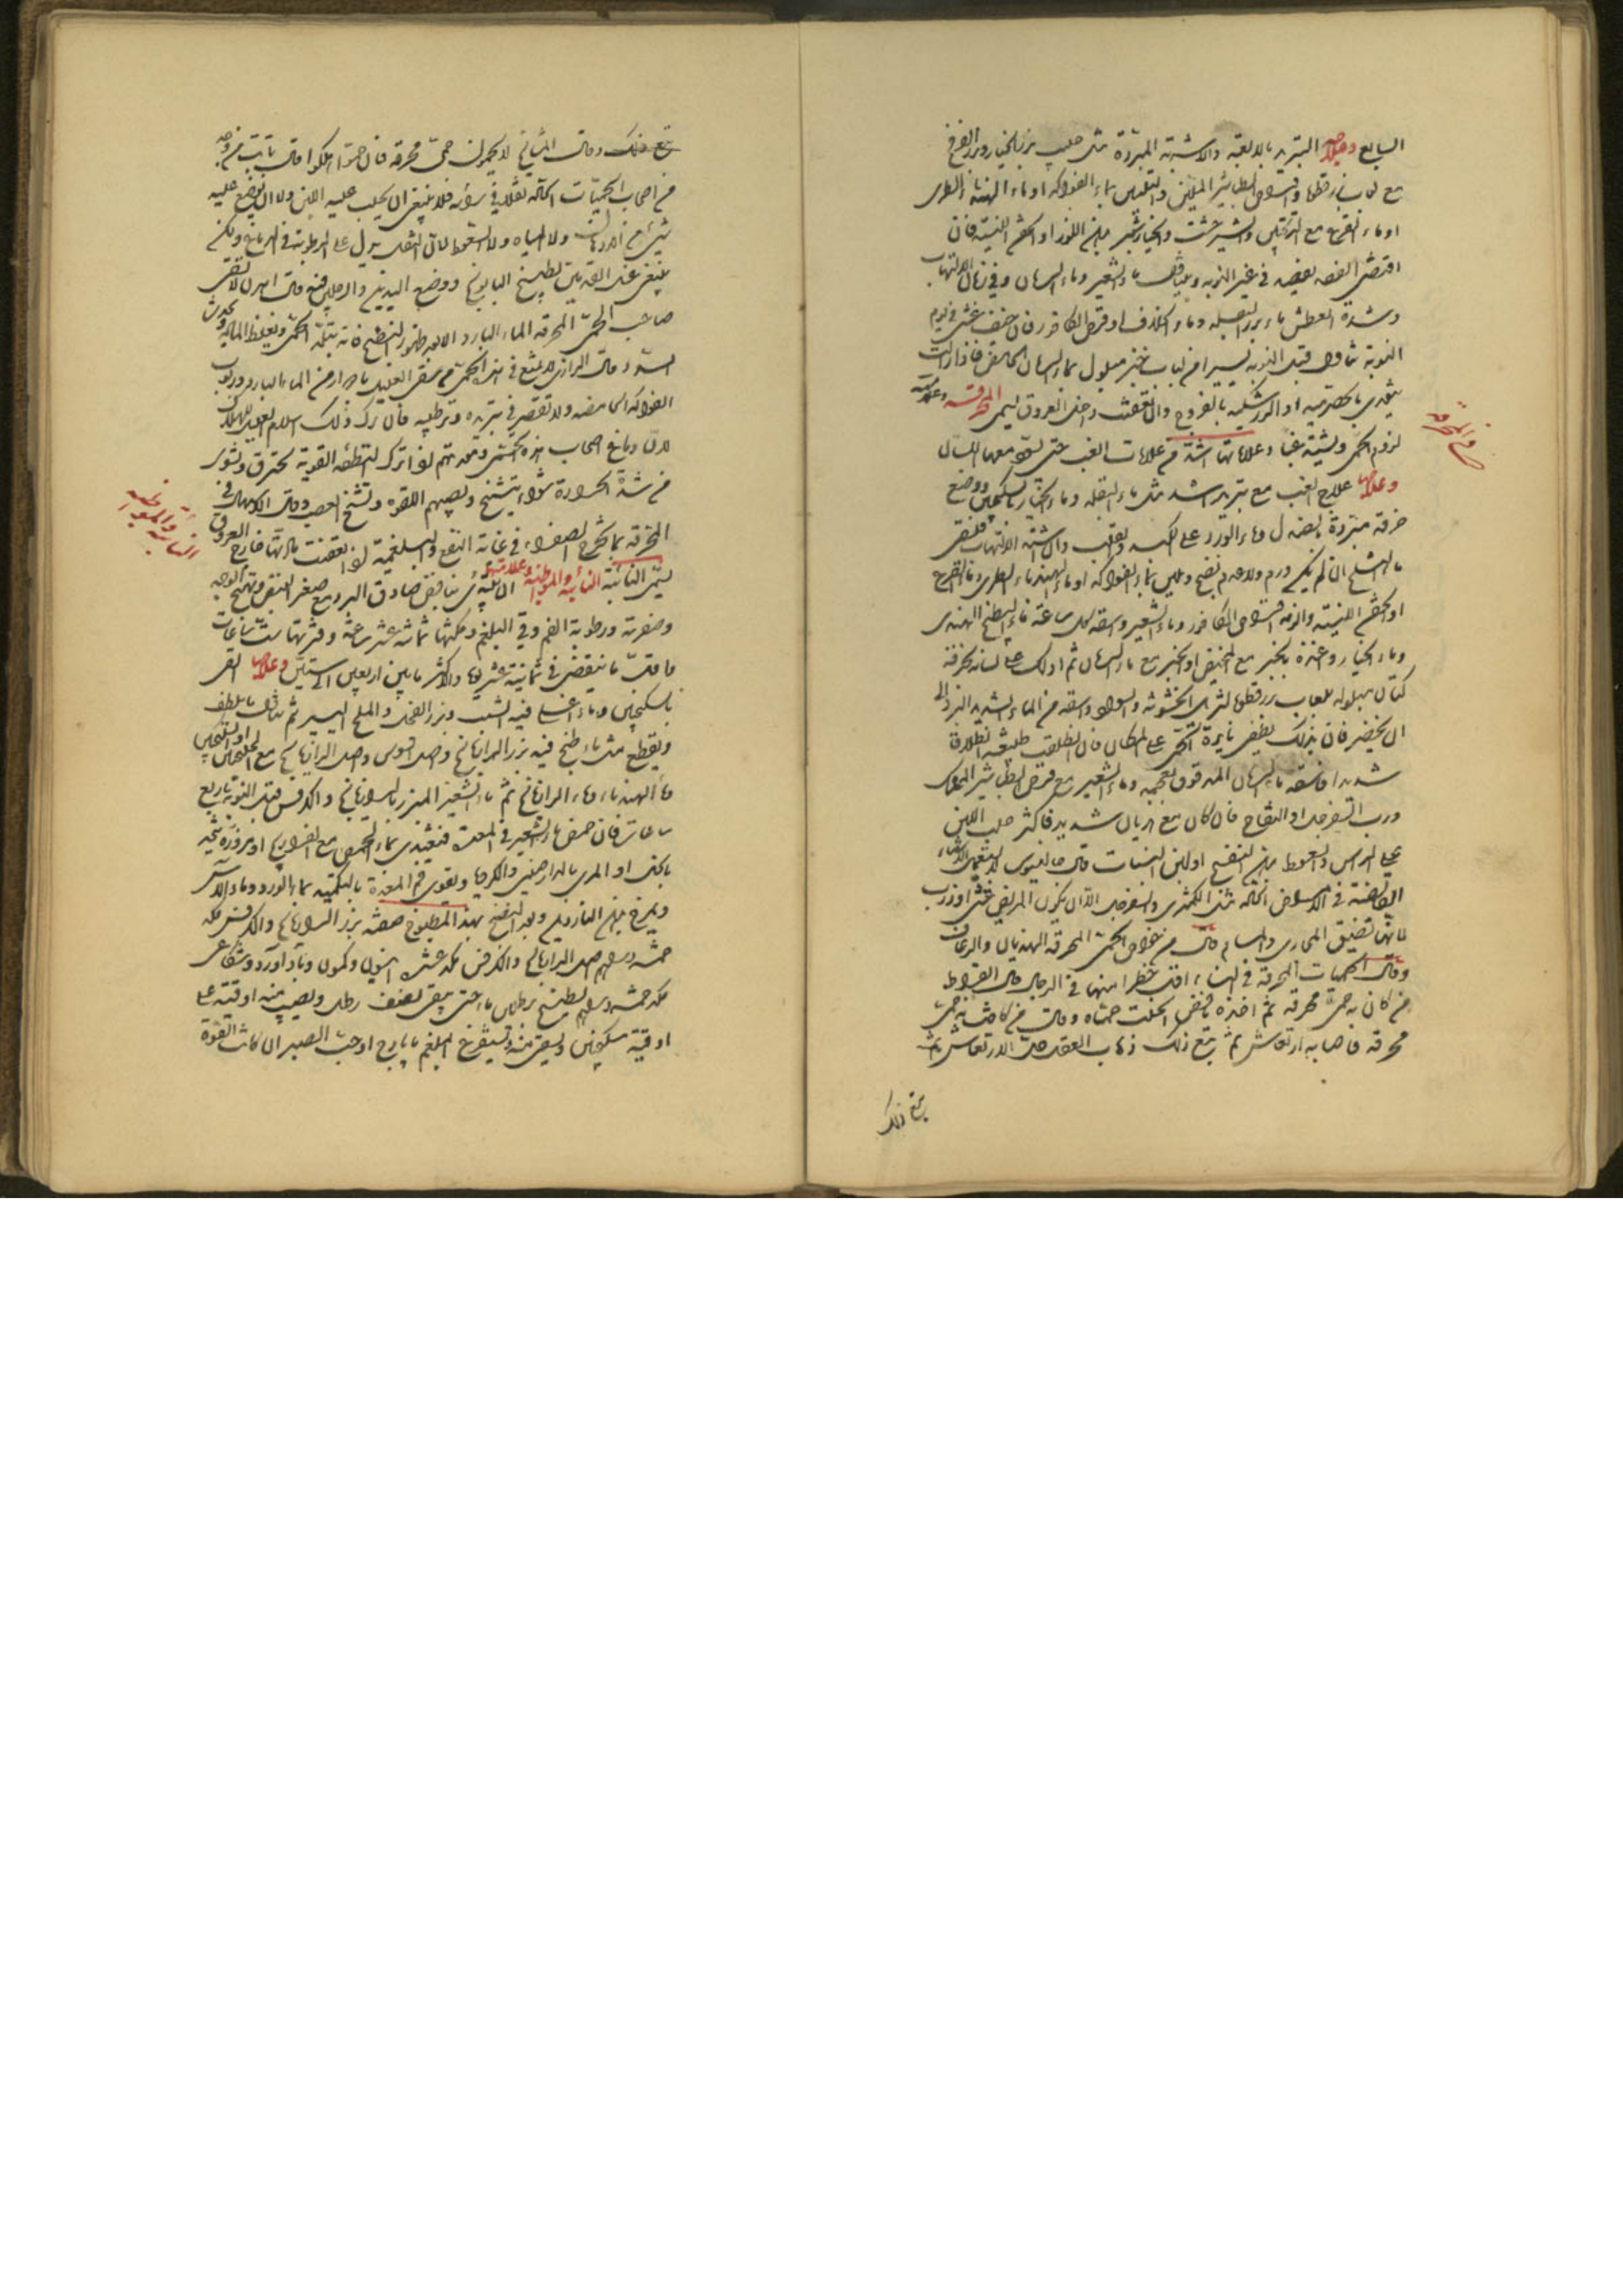 السابع وعلاجه التبريد بالادوية والاشربة المبردة مثل حليب بزر الخيار وبزر القرع
مع لعاب بزرقطونا واقراص الطباشير الملين والتليين بماء الفواكه او ماء الهندباء الطرى
او ماء القرع مع الترنجبين والشيرخشت والخيارشنبر بدهن اللوز او الحقن اللينة فان
اقتضى الفصد يفصد فى غير النوبة ويسقى ماء الشعير وماء الرمان وفى زمان الالتهاب
وشدة العطش ماء بزر البقلة وماء الخلاف او قرص الكافور فان خيف غشى فى يوم
النوبة تناول قبل النوبة يسيرا من لباب خبز مبلول بماء الرمان الحامض فاذا زالت
يغذى بالحصرمية او الزرشكية بالفروج وان تعفنت داخل العروق يسمى المحرقة وعلامته
لزوم الحمى وتشتد غبا وعلاماتها اشد من علامات الغب حتى يسود معها اللسان
وعلاجها علاج الغب مع تبريد اشد مثل ماء البقلة وماء الخيار بالسكنجبين ووضع
خرقة مبردة بصندل وماء الورد على الكبد والقلب وان اشتد الالتهاب فليسقى
ماء الثلج ان لم يكن ورم ولا عدم نضج وتليين بماء الفواكه او ماء الهندباء الطرى وماء القرع
او الحقن اللينة والزمه اقراص الكافور وماء الشعير واسقه كل ساعة ماء البطيخ الهندى
وماء الخيار وغذه بالخبز مع المخيض او الخبز مع ماء الرمان ثم ادلك على لسانه بخرقة
كتان مبلولة بلعاب بزرقطونا لتزيل الخشونة والسواد واسقه من الماء الشديد البرد الى
ان يخضر فان بذلك يطفى نايرة الحمى على المكان فان انطلقت طبيعته انطلاقا
شديدا فاسقه ماء الرمان المدقوق بعجمه وماء الشعير مع قرص الطباشير الممسك
ورب السفرجل او التفاح فان كان مع هذيان شديد فاكثر حلب اللبن
على الراس والسعوط بدهن البنفسج او لبن النساء قال جالينوس لا تستعمل الاشياء
القابضة فى الامراض الحادة مثل الكمثرى والسفرجل الا ان يكون بالمريض غشى او ذرب
لانها تضيق المجارى والمسام قال من خواص الحمى المحرقة الهذيان والرعاف
وقال الحميات المحرقة فى النساء اقل خطرا منها فى الرجال قال ابقراط
من كان به حمى محرقة ثم اخذه نافض انحلت حماه وقال من كانت به حمى
محرقة فاصابه ارتعاش ثم يتبع ذلك ذهاب العقل حل الارتعاش ثم
يتبع ذلك
المحرقة
يتبع ذلك وقال المشايخ لا يحمون حمى محرقة فان حموا هلكوا قال ثابت من وجد
من اصحاب الحميات الحادة ثقلا فى راسه فلا ينبغى ان يحلب عليه اللبن ولا ان يوضع عليه
شىء من الادهان ولا المياه ولا السعوط لان الثقل يدل على الرطوبة فى الدماغ ولكن
ينبغى غسل القدمين بطبيخ البابونج ووضع اليدين والرجلين فيه قال اهرن لا تسقى
صاحب الحمى المحرقة الماء البارد الا بعد ظهور النضج فانه يبلد الحمى ويغلظ المادة ويحدث
السدد وقال الرازى لا تمنع فى هذه الحمى من سقى العليل مرارا من الماء البارد وربوب
الفواكه الحامضة ولا تقصر فى تبريده وترطيبه فان ترك ذلك اسلم العليل للهلاك
لان دماغ اصحاب هذه الحمى ومعدتهم اذا ترك التطفئة القوية تحترق وتشوى
من شدة الحرارة شواء يتشنج ويصيبهم اللقوة وتشنج العصب وقال الكرمانى فى
المحرقة بما يخرج الصفراء فى غاية النفع والبلغمية اذا تعفنت مادتها خارج العروق
يسمى النائبة النائبة والمواظبة وعلامتها ان تبتدى بنافض صادق البرد مع صغر النبض وتهيج الوجه
وصفرته ورطوبة الفم وقى البلغم ومكثها ثمانية عشر ساعة وفترتها ست ساعات
فاقل ما ينقضى فى ثمانية عشر يوما واكثر ما بين اربعين الى ستين وعلاجها القى
بالسكنجبين وماء اغلى فيه الشبت وبزر الفجل والملح اليسير ثم يسقى ما يلطف
ويقطع مثل ماء طبخ فيه بزر الرازيانج واصل السوس واصل الرازيانج مع الجلنجبين او السكنجبين
ماء الهندباء وماء الرازيانج ثم ماء الشعير المبزر بالرازيانج والكرفس قبل النوبة باربع
ساعات فان حمض ماء الشعير فى المعدة فيغتذى بماء الحمص مع الفراريج او مزورة متخذة
بالخل او المرى بالدارصينى والكرويا ويقوى فم المعدة بالتكميد بماء الورد وماء الاس
ويمرخ بدهن الناردين وبعد النضج بهذا المطبوخ صفته بزر الرازيانج والكرفس مكد
خمسة دراهم اصل الرازيانج والكرفس مكد عشرة انيسون وكمون وبادآورد وشكاعى
مكد خمسة دراهم يطبخ برطلين ماء حتى يبقى نصف رطل ويصب منه اوقية على
اوقية سكنجبين ويسقى منه ويستفرغ البلغم بايارج او حب الصبر ان كانت القوة
النائبة والمواظبة